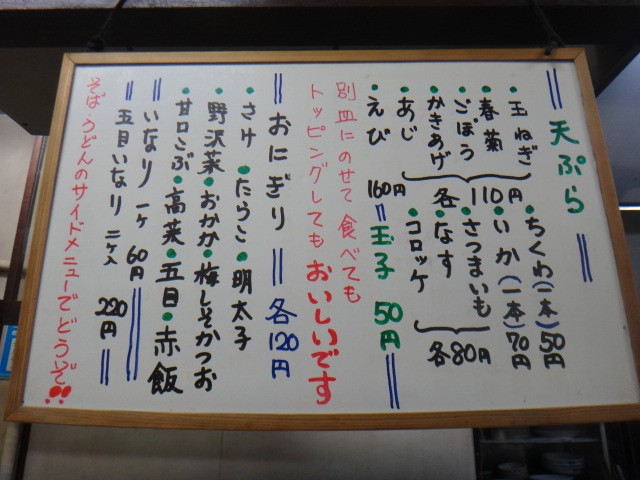 天ぷら
・玉ねぎ
・春菊
・ごぼう
・かきあげ
・あじ
各110円
・えび 160円
・ちくわ(一本)50円
・いか(一本)70円
・さつまいも
・なす
・コロッケ
各80円
玉子 50円
別皿にのせて食べても
トッピングしてもおいしいです
おにぎり 各120円
・さけ・たらこ・明太子
・野沢菜・おかか・梅しそかつお
・甘口こぶ・高菜・五目・赤飯
・いなり 一ヶ 60円
五目いなり 二ヶ入 220円
そば・うどんのサイドメニューでどうぞ!!